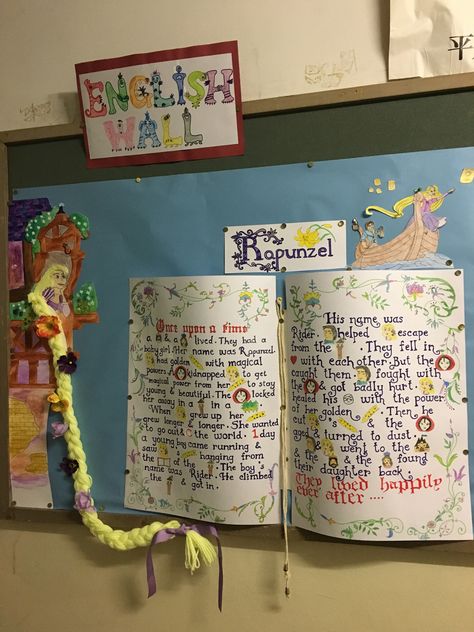 ENGLISH
WALL
平
Rapunzel
Once upon a time
a & a lived. They had a
baby girl. Her name was Rapunzel.
had golden with magical
powers. A kidnapped to get
magical power from her to stay
young & beautiful. The locked
her away in a in a
When grew up her
grew longer & longer. She wanted
to go out the world. 1 day
a young came running &
saw of hanging from
the The boy's
name was Rider. He climbed
the & got in.
His name was
Rider. helped escape
from the They fell in
with each other. But the
caught them. fought with
the & got badly hurt.
healed his with the power
of her golden Then he
cut 's & the
aged & turned to dust.
& went to the
& the & the found
their daughter back.
They lived happily
ever after ....